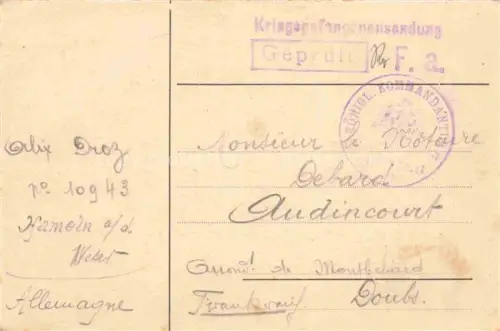 Kriegsgefangenensendung
Geprüft F. a.
KÖNIGL. KOMMANDANTUR
Monsieur le Notaire
Debard
Audincourt
Arrond.t de Montbéliard
Doubs.
Frankreich
Alix Droz
no 10943
Hameln a/d.
Weser
Allemagne